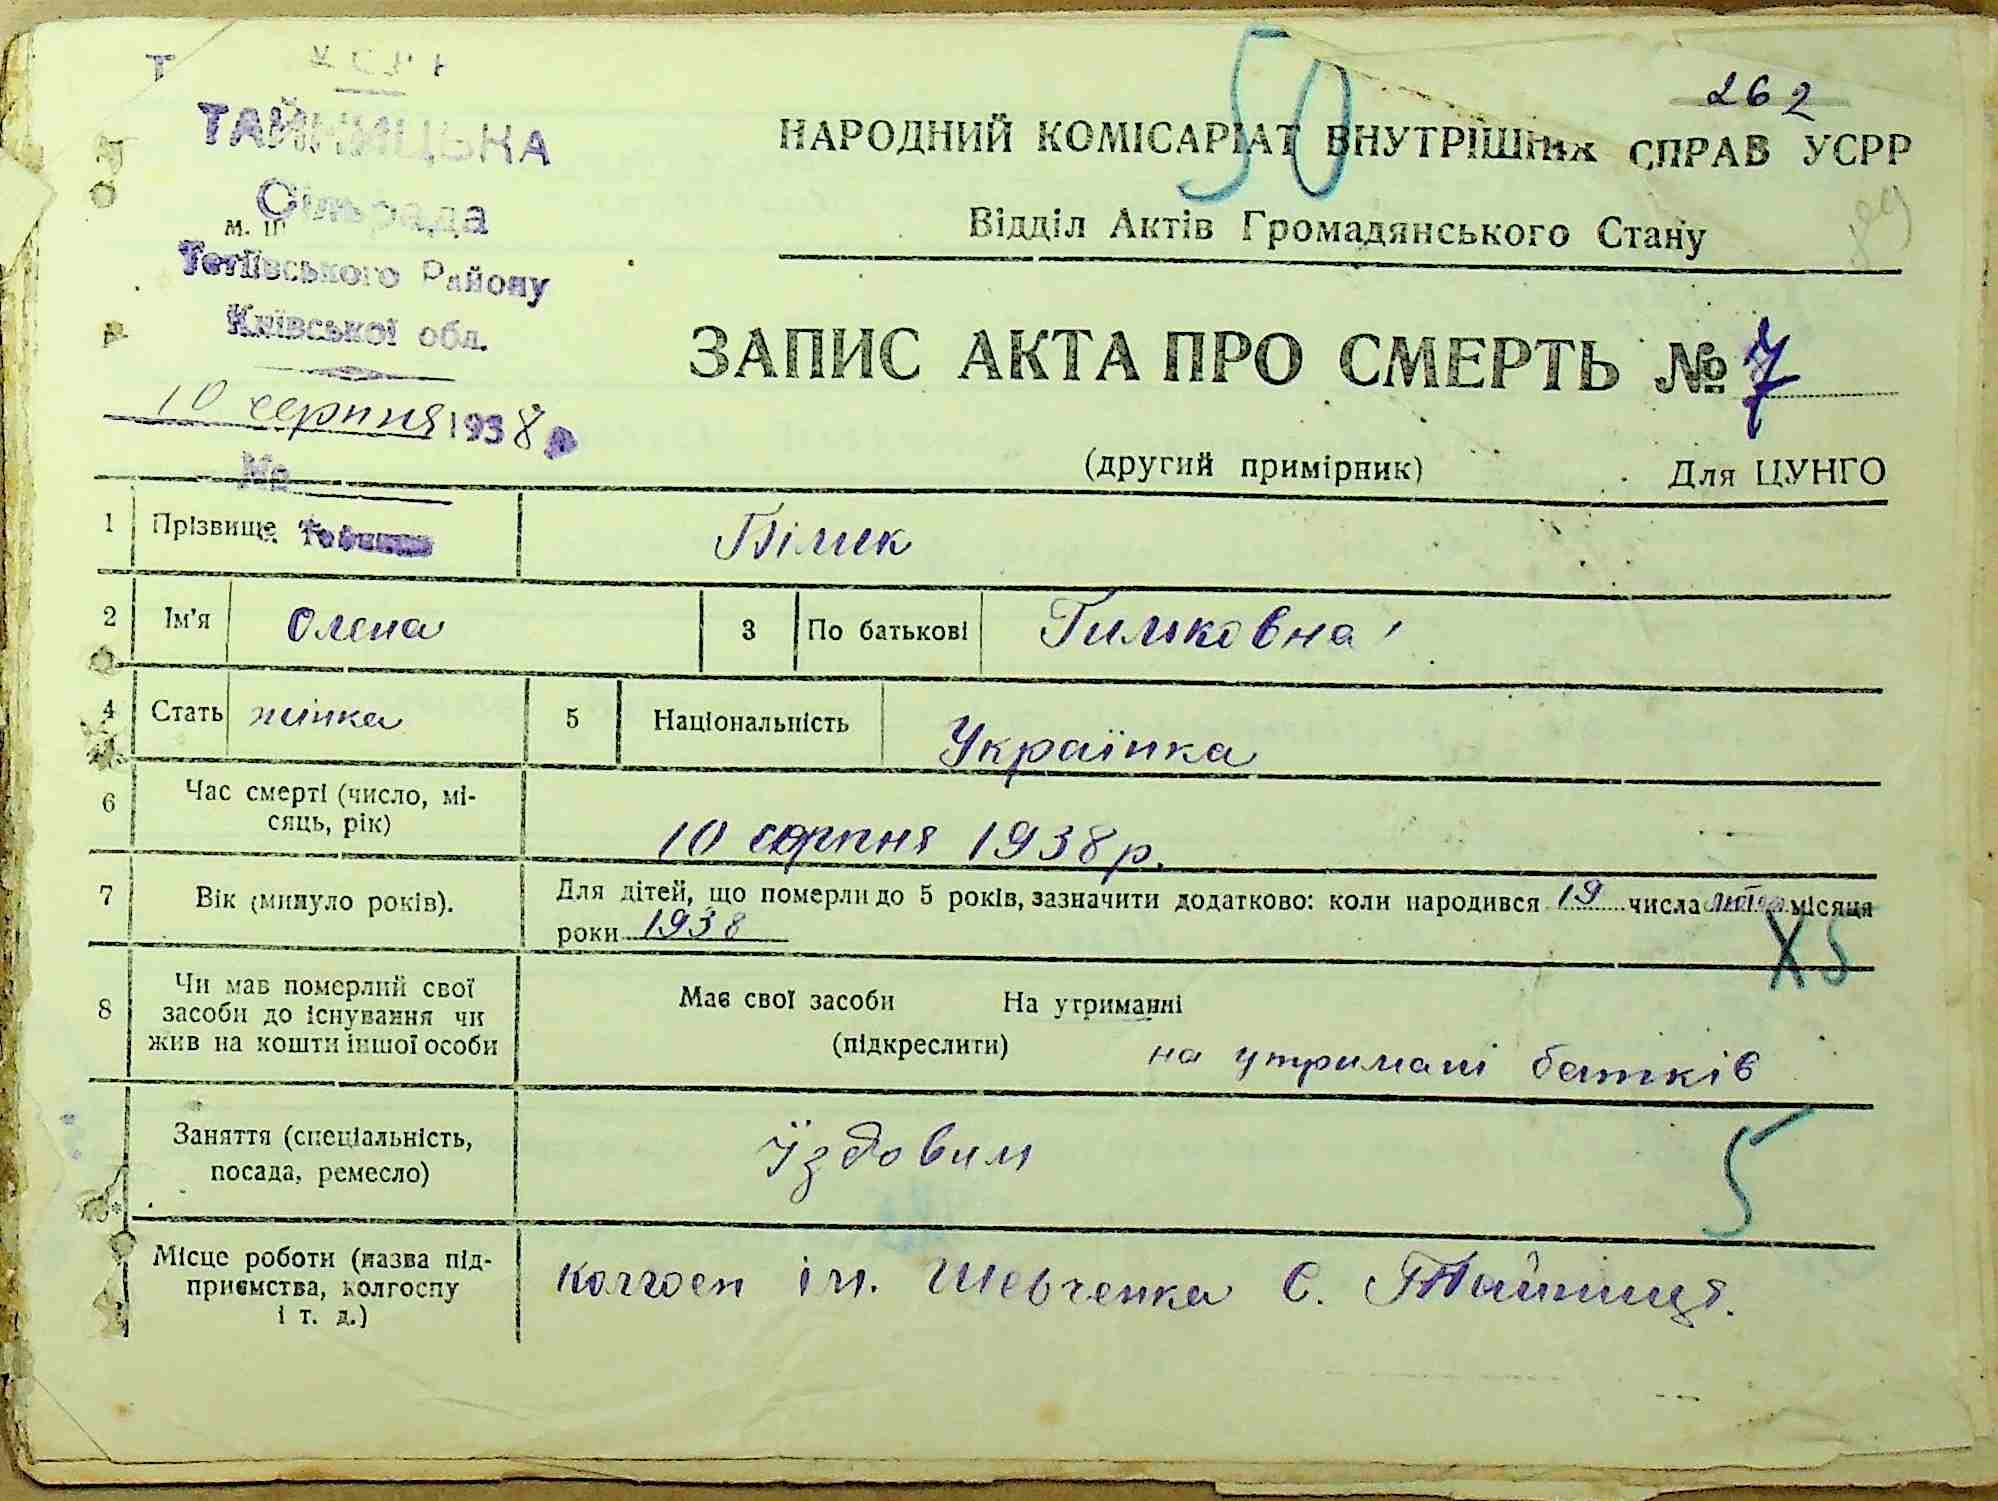 262
50
УСРР
ТАЙНИЦЬКА
Сільрада
м. п.
Тетіївського Району
Київської обл.
10 серпня 1938 р
№
НАРОДНИЙ КОМІСАРІАТ ВНУТРІШНІХ СПРАВ УСРР
Відділ Актів Громадянського Стану
89
ЗАПИС АКТА ПРО СМЕРТЬ № 7
(другий примірник) Для ЦУНГО
1 Прізвище Білик
2 Ім'я Олена 3 По батькові Тимковна
4 Стать жінка 5 Національність Українка
6 Час смерті (число, мі-
сяць, рік) 10 серпня 1938 р.
7 Вік (минуло років). Для дітей, що померли до 5 років, зазначити додатково: коли народився 19 числа лютого місяця
роки 1938
Х5
8 Чи мав померлий свої
засоби до існування чи
жив на кошти іншої особи
Має свої засоби На утриманні
(підкреслити) на утримані батьків
Заняття (спеціальність,
посада, ремесло) Їздовим
5
Місце роботи (назва під-
приємства, колгоспу
і т. д.) колгосп ім. Шевченка С. Тайниця.